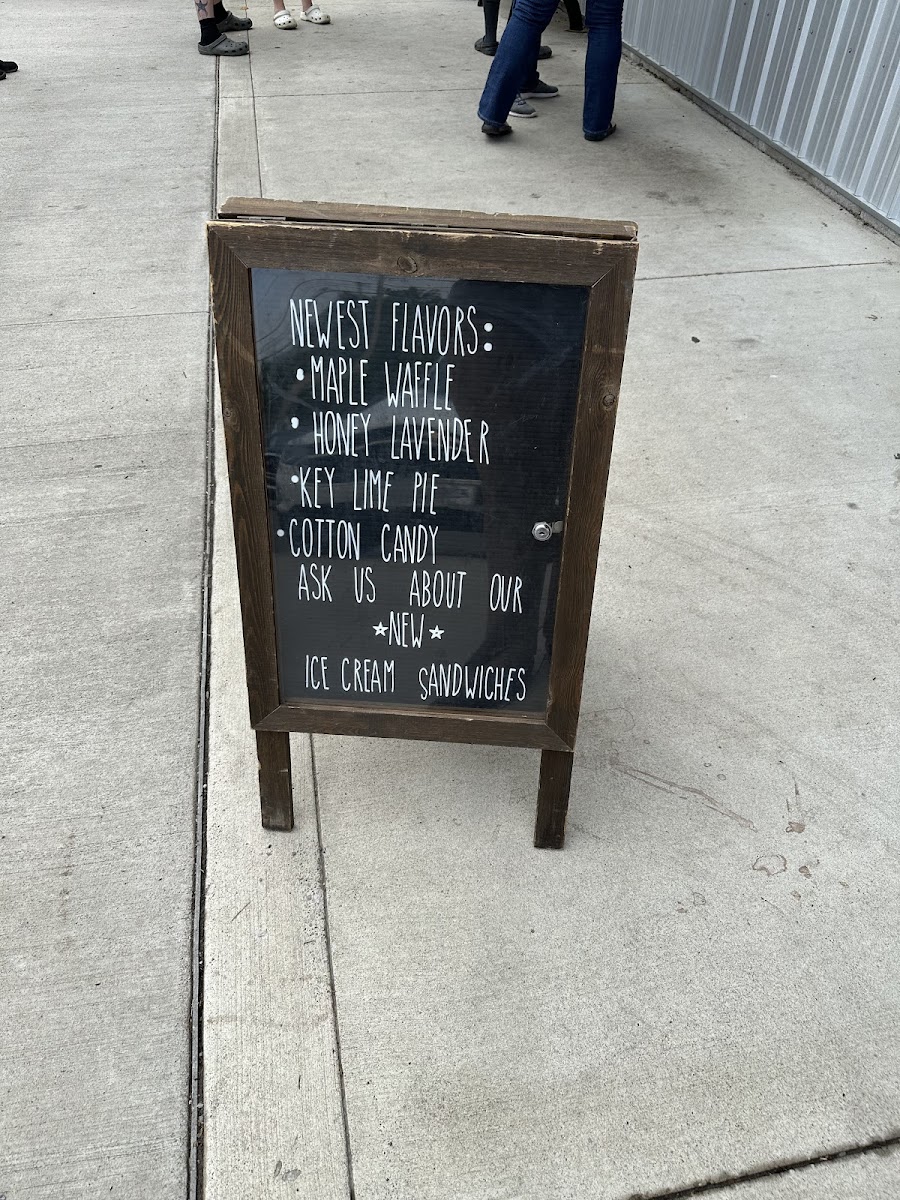 NEWEST FLAVORS:
• MAPLE WAFFLE
• HONEY LAVENDER
• KEY LIME PIE
• COTTON CANDY
ASK US ABOUT OUR
☆NEW☆
ICE CREAM SANDWICHES